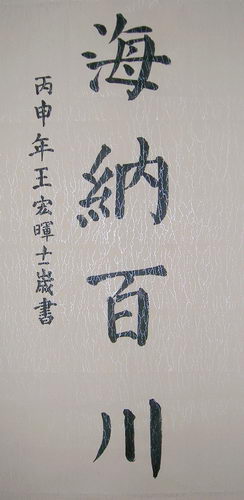 海納百川
丙申年王宏暉十一歲書